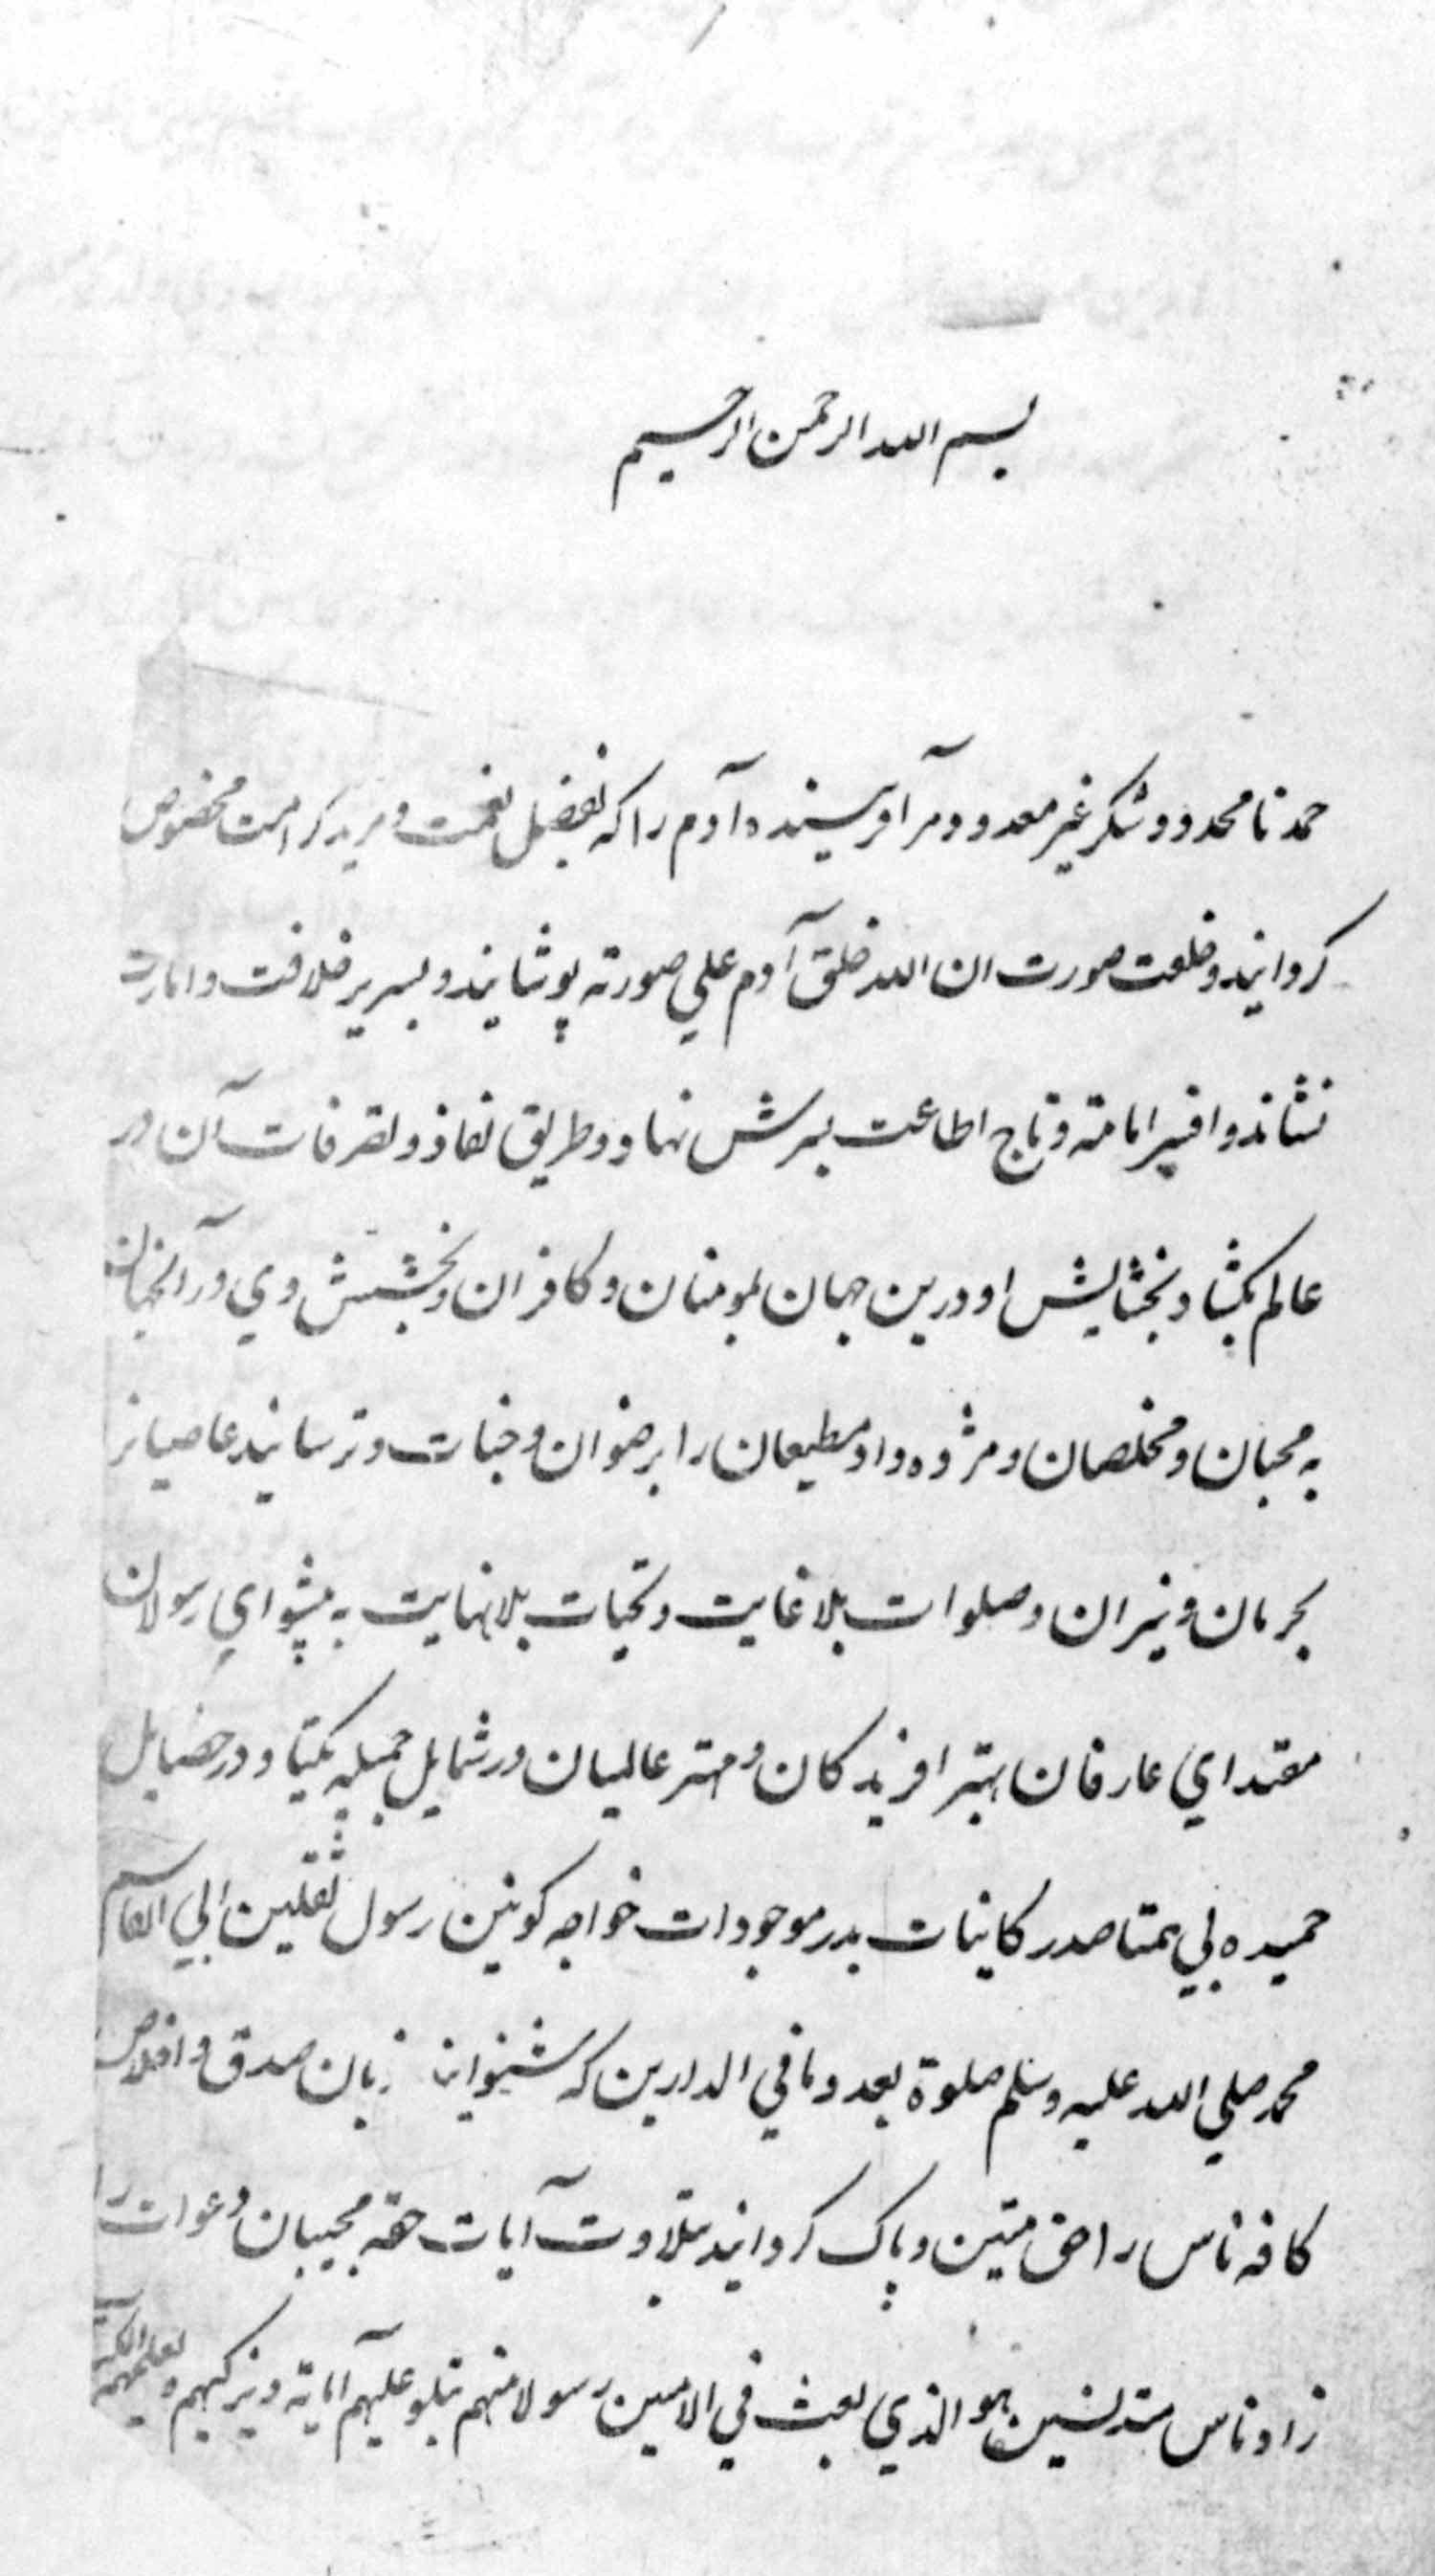 بسم الله الرحمن الرحیم
حمد نامحدود و شکر غیر معدود مر آفریننده آدم را که بفضیل نعمت و مزید کرامت مخصوص
کردانید و خلعت صورت ان الله خلق آدم علی صورته پوشانید و بسریر خلافت و امارت
نشاند و افسر امامته و تاج اطاعت بسرش نهاد و طریق نفاذ و تصرفات آن در
عالم بکشاد و بخشایش او درین جهان بمومنان و کافران و بخشش وی در آنجهان
به محبان و مخلصان و مژده داد مطیعان را برضوان و جنات و ترسانید عاصیانرا
بحرمان و نیران و صلوات بلا غایت و تحیات بلا نهایت به پیشوای رسولان
مقتدای عارفان بهتر افریدکان و مهتر عالمیان در شمایل جمیله یکتا و در خصایل
حمیده بی همتا صدر کاینات بدر موجودات خواجه کونین رسول ثقلین ابی القاسم
محمد صلی الله علیه وسلم صلوة بعدد ما فی الدارین که زبان صدق و اخلاص
کافه ناس را متین و پاک کردانید بتلاوت آیات حقه مجیبان دعوات را
زاد ناس هو الذی بعث فی الامیین رسولا منهم یتلو علیهم آیاته و یزکیهم و یعلمهم الکتب